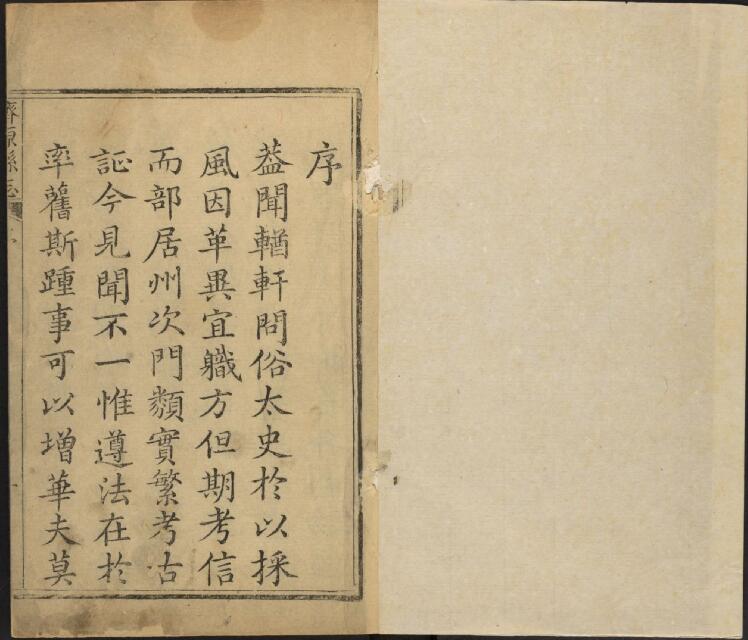 序
葢聞輶軒問俗太史於以採
風因革異宜軄方但期考信
而部居州次門類實繁考古
証今見聞不一惟遵法在於
率舊斯踵事可以增華夫莫
濟源縣志